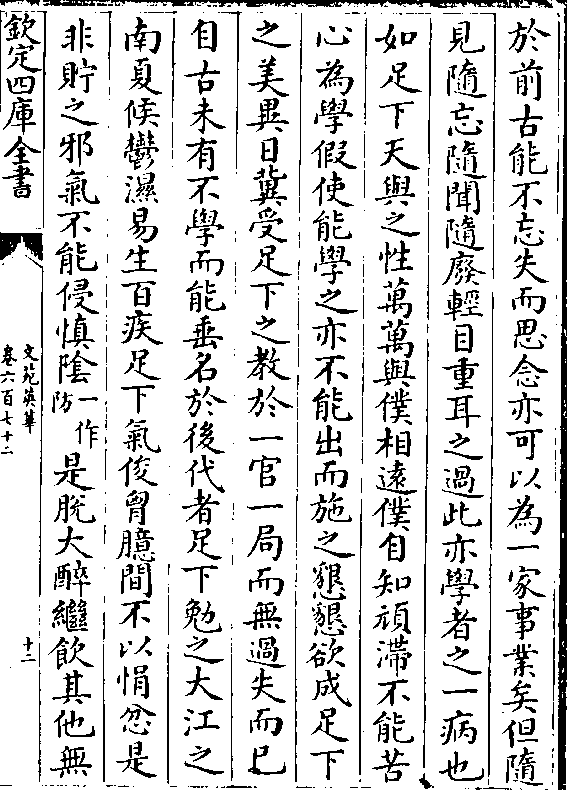 於前古能不忘失而思念亦可以為一家事業矣但隨
見隨忘隨聞隨廢輕目重耳之過此亦學者之一病也
如足下天與之性萬萬與僕相遠僕自知頑滯不能苦
心為學假使能學之亦不能出而施之懇懇欲成足下
之美異日冀受足下之教於一官一局而無過失而已
自古未有不學而能垂名於後代者足下勉之大江之
南夏候鬱濕易生百疾足下氣俊胷臆間不以悁忿是
非貯之邪氣不能侵慎陰一作防是脫大醉繼飲其他無
欽定四庫全書
文苑英華
卷六百七十二
十二